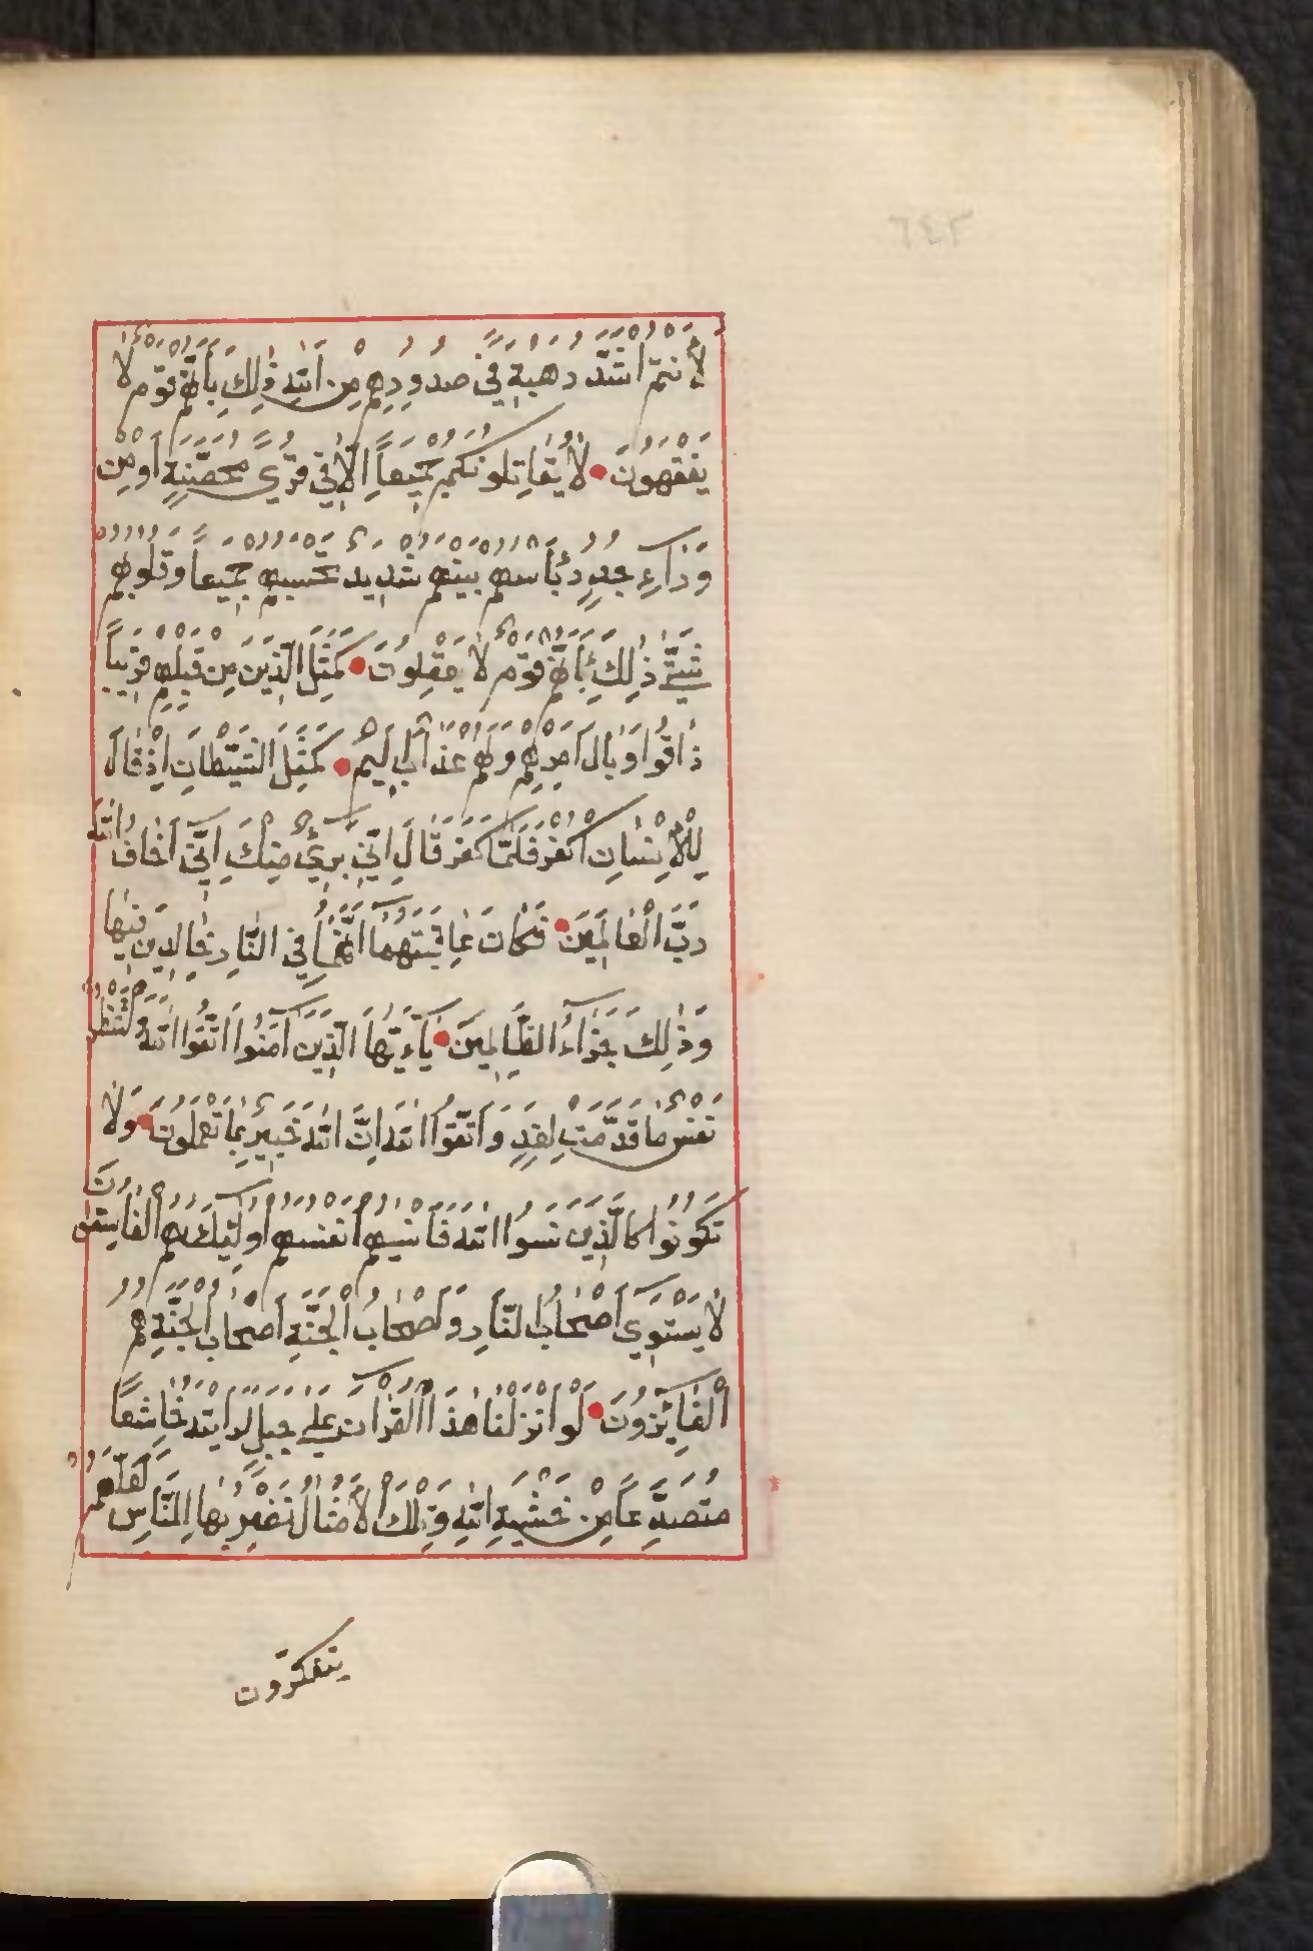 ٦٤٣
لَأَنتُمْ أَشَدُّ رَهْبَةً فِي صُدُورِهِم مِّنَ اللَّهِ ذَٰلِكَ بِأَنَّهُمْ قَوْمٌ لَّا
يَفْقَهُونَ ● لَا يُقَاتِلُونَكُمْ جَمِيعًا إِلَّا فِي قُرًى مُحَصَّنَةٍ أَوْ مِنْ
وَرَاءِ جُدُرٍ بَأْسُهُمْ بَيْنَهُمْ شَدِيدٌ تَحْسَبُهُمْ جَمِيعًا وَقُلُوبُهُمْ
شَتَّى ذَٰلِكَ بِأَنَّهُمْ قَوْمٌ لَا يَعْقِلُونَ ● كَمَثَلِ الَّذِينَ مِنْ قَبْلِهِمْ قَرِيبًا
ذَاقُوا وَبَالَ أَمْرِهِمْ وَلَهُمْ عَذَابٌ أَلِيمٌ ● كَمَثَلِ الشَّيْطَانِ إِذْ قَالَ
لِلْإِنْسَانِ اكْفُرْ فَلَمَّا كَفَرَ قَالَ إِنِّي بَرِيءٌ مِنْكَ إِنِّي أَخَافُ اللَّهَ
رَبَّ الْعَالَمِينَ ● فَكَانَ عَاقِبَتَهُمَا أَنَّهُمَا فِي النَّارِ خَالِدَيْنِ فِيهَا
وَذَٰلِكَ جَزَاءُ الظَّالِمِينَ ● يَاءَيُّهَا الَّذِينَ آمَنُوا اتَّقُوا اللَّهَ وَلْتَنْظُرْ
نَفْسٌ مَا قَدَّمَتْ لِغَدٍ وَاتَّقُوا اللَّهَ إِنَّ اللَّهَ خَبِيرٌ بِمَا تَعْمَلُونَ ● وَلَا
تَكُونُوا كَالَّذِينَ نَسُوا اللَّهَ فَأَنْسَيهُمْ أَنْفُسَهُمْ أُولَٰئِكَ هُمُ الْفَاسِقُونَ
لَا يَسْتَوِي أَصْحَابُ النَّارِ وَأَصْحَابُ الْجَنَّةِ أَصْحَابُ الْجَنَّةِ هُمُ
الْفَائِزُونَ ● لَوْ أَنْزَلْنَا هَٰذَا الْقُرْآنَ عَلَى جَبَلٍ لَرَأَيْتَهُ خَاشِعًا
مُتَصَدِّعًا مِنْ خَشْيَةِ اللَّهِ وَتِلْكَ الْأَمْثَالُ نَضْرِبُهَا لِلنَّاسِ لَعَلَّهُمْ
يتفكرون